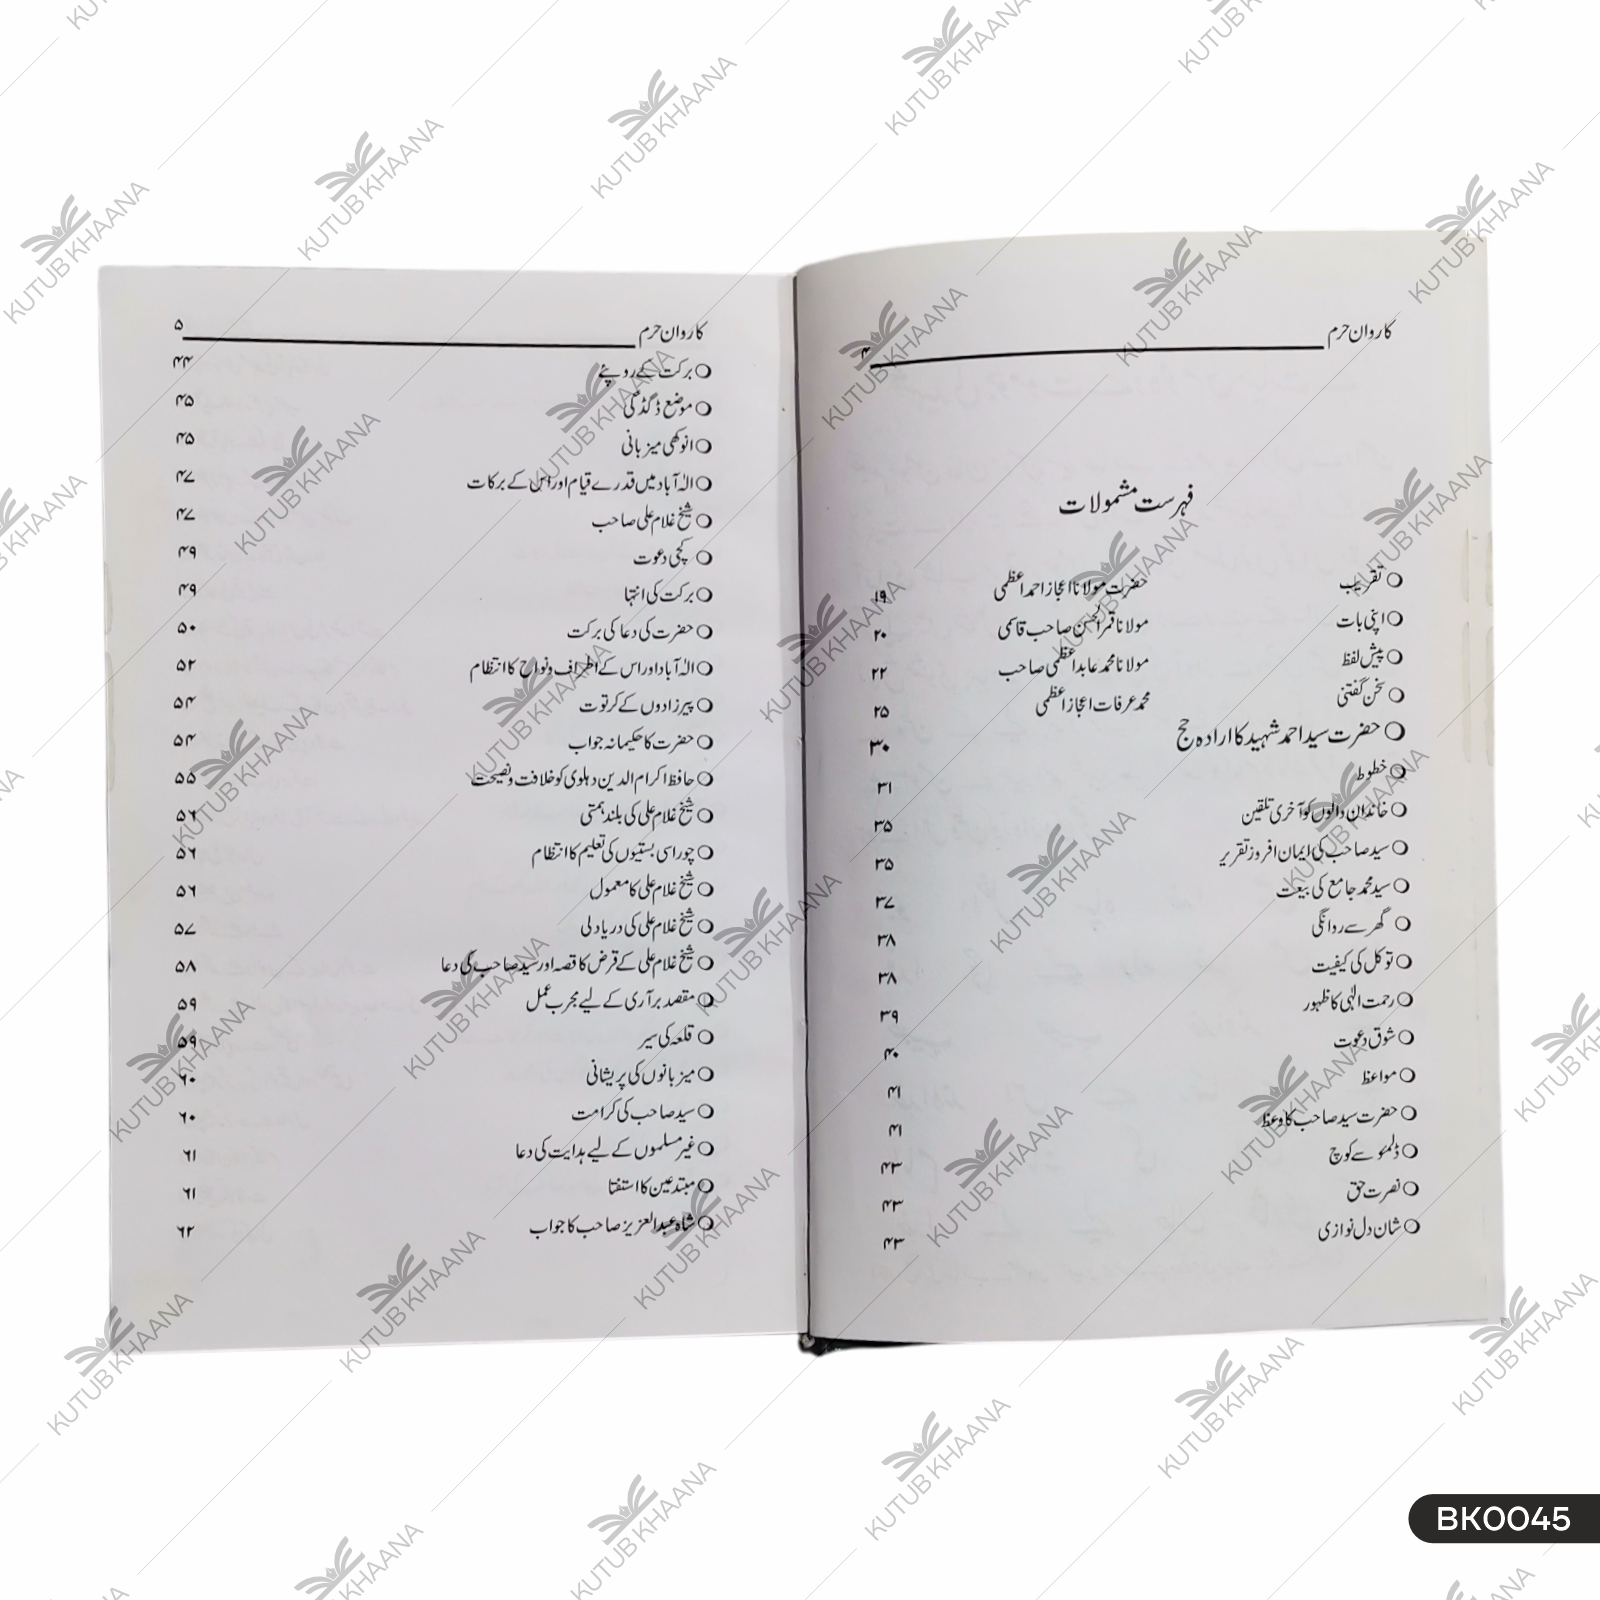 کاروان حرم ۴
فہرست مشمولات
○ تقریب حضرت مولانا اعجاز احمد اعظمی ۱۹
○ اپنی بات مولانا قمر الحسن صاحب قاسمی ۲۰
○ پیش لفظ مولانا محمد عابد اعظمی صاحب ۲۲
○ سخن گفتنی محمد عرفات اعجاز اعظمی ۲۵
○ حضرت سید احمد شہید کا ارادہ حج ۳۰
○ خطوط ۳۱
○ خاندان والوں کو آخری تلقین ۳۵
○ سید صاحب کی ایمان افروز تقریر ۳۵
○ سید محمد جامع کی بیعت ۳۷
○ گھر سے روانگی ۳۸
○ توکل کی کیفیت ۳۸
○ رحمت الٰہی کا ظہور ۳۹
○ شوق دعوت ۴۰
○ مواعظ ۴۱
○ حضرت سید صاحب کا وعظ ۴۱
○ ڈلمئو سے کوچ ۴۳
○ نصرت حق ۴۳
○ شان دل نوازی ۴۳
کاروان حرم ۵
○ برکت کے روپئے ۴۴
○ موضع ڈگڈگی ۴۵
○ انوکھی میزبانی ۴۵
○ الٰہ آباد میں قدرے قیام اور اس کے برکات ۴۷
○ شیخ غلام علی صاحب ۴۷
○ کچی دعوت ۴۹
○ برکت کی انتہا ۴۹
○ حضرت کی دعا کی برکت ۵۰
○ الٰہ آباد اور اس کے اطراف و نواح کا انتظام ۵۲
○ پیرزادوں کے کرتوت ۵۴
○ حضرت کا حکیمانہ جواب ۵۴
○ حافظ اکرام الدین دہلوی کو خلافت و نصیحت ۵۵
○ شیخ غلام علی کی بلند ہمتی ۵۶
○ چوراسی بستیوں کی تعلیم کا انتظام ۵۶
○ شیخ غلام علی کا معمول ۵۶
○ شیخ غلام علی کی دریا دلی ۵۷
○ شیخ غلام علی کے قرض کا قصہ اور سید صاحب کی دعا ۵۸
○ مقصد برآری کے لیے مجرب عمل ۵۹
○ قلعہ کی سیر ۵۹
○ میزبانوں کی پریشانی ۶۰
○ سید صاحب کی کرامت ۶۰
○ غیر مسلموں کے لیے ہدایت کی دعا ۶۱
○ مبتدعین کا استفتا ۶۱
○ شاہ عبدالعزیز صاحب کا جواب ۶۲
KUTUB KHAANA
BK0045